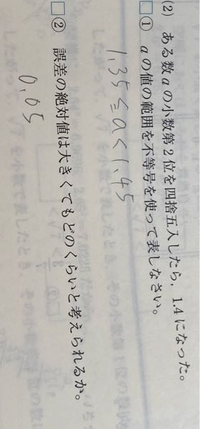 (2) ある数aの小数第2位を四捨五入したら，1.4になった。
□① aの値の範囲を不等号を使って表しなさい。
1.35≦a<1.45
□② 誤差の絶対値は大きくてもどのくらいと考えられるか。
0.05